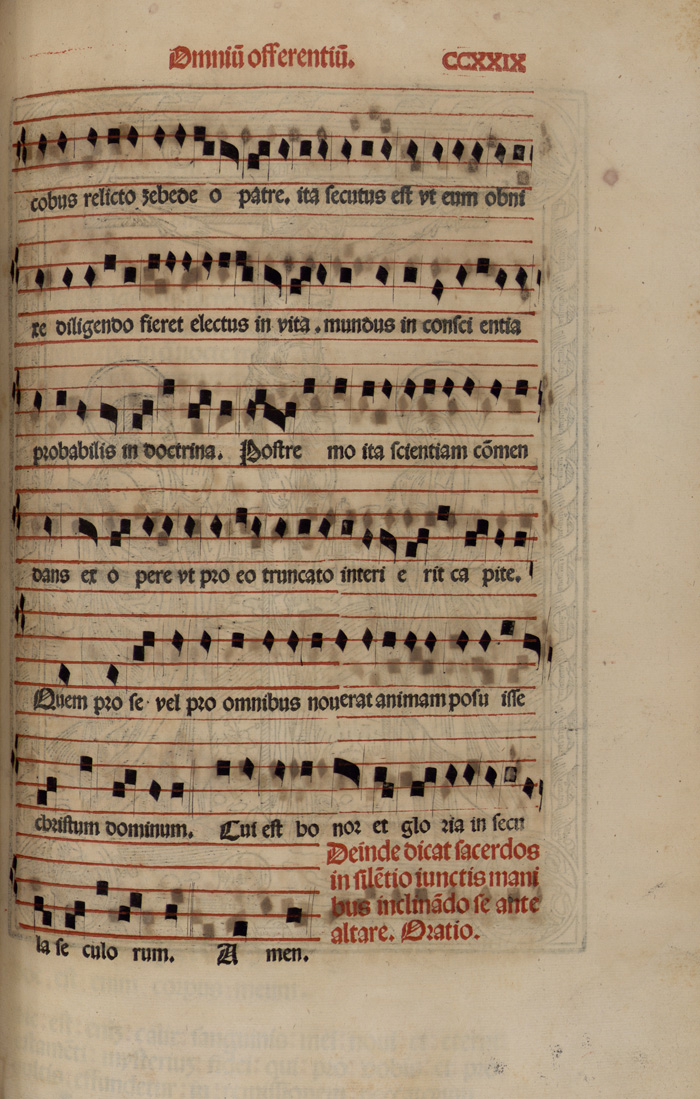 Omniū offerentiū. CCXXIX
cobus relicto zebede o patre. ita secutus est vt eum obni
xe diligendo fieret electus in vita . mundus in consci entia
probabilis in doctrina. Postre mo ita scientiam cōmen
dans ex o pere vt pro eo truncato interi e rit ca pite.
Quem pro se vel pro omnibus nouerat animam posu isse
christum dominum. Cui est ho nor et glo ria in secu
la se culo rum. A men.
Deinde dicat sacerdos
in silētio iunctis mani
bus inclinādo se ante
altare. Oratio.